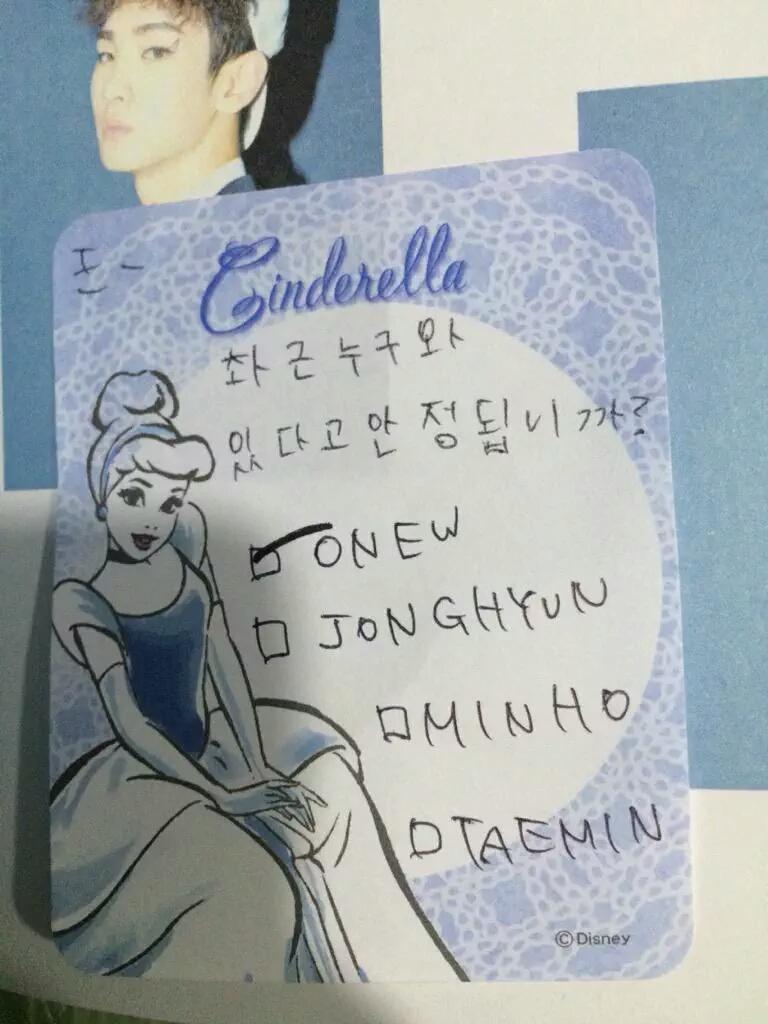 Cinderella
촤근누구와
있다고안정됩니까?
ONEW
JONGHYUN
MINHO
TAEMIN
©Disney